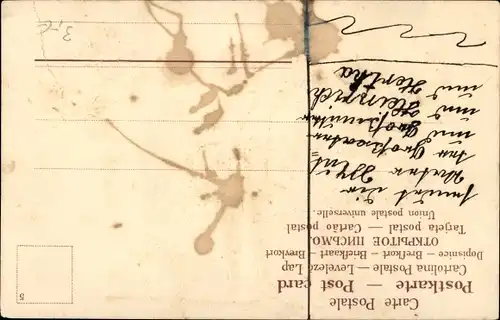 Carte Postale
Postkarte — Post card
Cartolina Postale — Levelező Lap
Dopisnice — Brefkort — Briefkaart — Brevkort
ОТКРЫТОЕ ПИСЬМО.
Tarjeta postal — Cartão postal
Union postale universelle.
Großvater
und Großmutter
und Heinrich
und Hertha
5